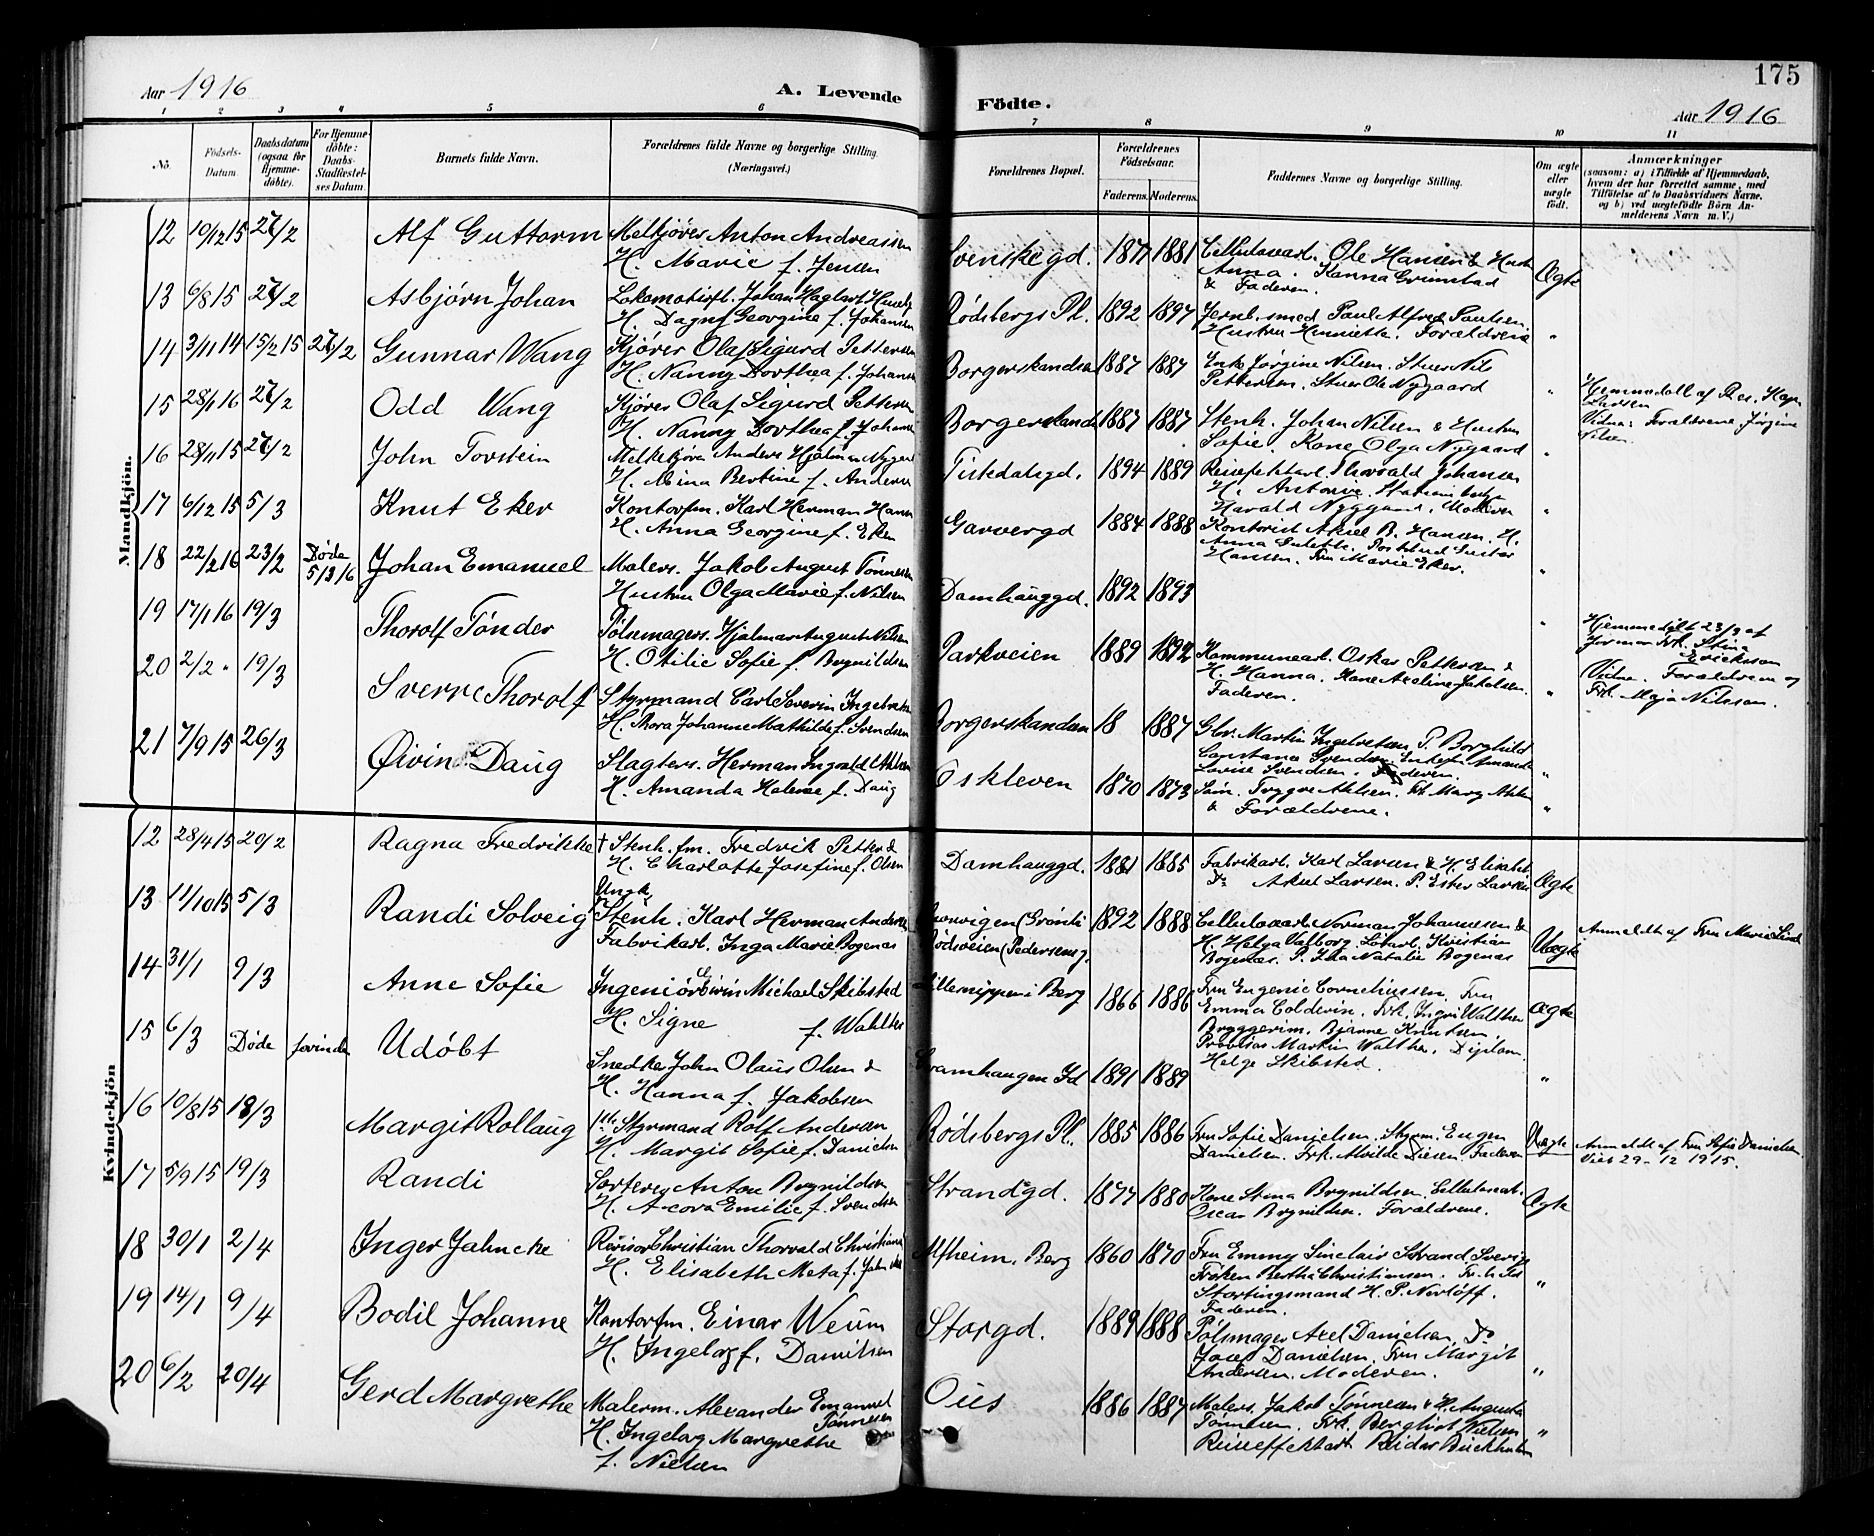 175
Aar 1916
A. Levende
Födte.
Aar 1916
1 2 3 4 5 6 7 8 9 10 11
No.
Födsels-Datum.
Daabsdatum (ogsaa for Hjemmedöbte).
For Hjemmedöbte: Daabs-Stadfæstelses Datum.
Barnets fulde Navn.
Forældrenes fulde Navne og borgerlige Stilling. (Næringsvei.)
Forældrenes Bopæl.
Forældrenes Födselsaar.
Faderens.
Moderens.
Faddernes Navne og borgerlige Stilling.
Om ægte eller uægte födt.
Anmærkninger
(saasom: a) i Tilfælde af Hjemmedaab, hvem der har forrettet samme, med Tilföielse af to Daabsvidners Navne, og b) ved uægtefödte Börn Anmelderens Navn m. V.)
Mandkjön.
12 10/12 15 27/2 Alf Guttorm
Melkjører Anton Andreassen
H. Marie f. Jensen
Svenskegd. 1877 1881
Cellulosearb. Ole Hansen & Hustr
Anna. Hanna Grimstad
& Faderen.
Ægte
13 6/8 15 27/2 Asbjørn Johan
H. Dagny Georgine f. Johansen
Rødsbergs Pl. 1892 1897
Jernb. smed Paul Alfred Paulsen
Hustru Henriette. Forældrene
"
14 3/11 14 15/2 15 27/2 Gunnar Wang
Kjører Olaf Sigurd Pettersen
H. Nanny Dorthea f. Johansen
Borgerskansen 1887 1887
Enke Jørgine Nilsen. Stuer Nils
Pettersen. Stuer Ole Nygaard
"
Hjemmedøbt af Res. Kap.
Larsen
Vidner: Forældrene, Jørgine
Nilsen.
15 28/1 16 27/2 Odd Wang
Kjører Olaf Sigurd Pettersen
H. Nanny Dorthea f. Johansen
Borgerskansen 1887 1887
Stenh. Johan Nilsen & Hustru
Sofie. Kone Olga Nygaard
"
16 28/11 15 27/2 John Torstein
Melkekjører Anders Hjalmar Nygård
H. Mina Bertine f. Andersen
Tistedalsgd. 1894 1889
Reiseeffektarb. Thorvald Johansen
H. Antonie.
Harald Nyggaard. Moderen
"
17 6/12 15 5/3 Knut Eker
Kontorfm. Karl Herman Hansen
H. Anna Georgine f. Eker
Garvergd 1884 1888
Kontorist Aksel B. Hansen. H.
Anna Postbud Gustav
Hansen. Fru Marie Eker.
"
18 22/2 16 23/2 Døde 5/3 16 Johan Emanuel
Malers. Jakob August Tønnesen
Hustru Olga Marie f. Nilsen
Damhauggd. 1892 1893
"
19 17/1 16 19/3 Thorolf Tønder
Pølsemagers. Hjalmar August Nilsen
H. Otilie Sofie f. Brynildsen
Parkveien 1889 1892
Kommunearb. Oskar Pettersen &
H. Hanna. Kone Axeline Jakobsen.
Faderen.
"
Hjemmedøbt 23/3 af
Jormor Frk. Stina
Ericksson
Vidne. Forældrene og
Frk. Maja Nilsson.
20 2/2 " 19/3 Sverre Thorolf
Styrmand Carl Severin Ingebretsen
H. Thora Johanne Mathilde f. Svendsen
Borgerskansen 18 1887
Gbr. Martin Ingebretsen. P. Borghild
Constanse Svendsen. Enkefru Amanda
Lovise Svendsen. Faderen.
"
21 7/9 15 26/3 Øivind Daug
Slagters. Herman Ingvald Ahlsen
H. Amanda Halene f. Daug
Oskleven 1870 1873
Søm. Trygve Ahlsen. Frk Mary Ahlsen
& Forældrene.
"
Kvindekjön
12 28/4 15 20/2 Ragna Fredrikke
† Stenh. fm. Fredrik Petter &
H. Charlotte Josefine f. Olsen
Damhauggd. 1881 1885
Fabrikarb. Karl Larsen & H. Elisabet.
Do Aksel Larsen. P. Ester Larsen
Ægte
13 11/10 15 5/3 Randi Solveig
Ungk.
Stenh. Karl Herman Andersen
Fabrikarb. Inga Marie Bogenæs
Rødsveien (Pedersengd. 1892 1888
Cellulosearb. Norman Johannesen &
H. Helga Valborg. Løsarb. Kristian
Bogenæs. P. Ida Natalie Bogenæs
Uægte
Anmeldt af Fru Marie Lund
14 31/1 9/3 Anne Sofie
Ingeniør Eivin Michael Skibsted
H. Signe f. Walther
Lillesnippen i Berg 1866 1886
Fru Eugenie Corneliussen. Fru
Emma Coldevin. Frk. Ingri Walther
Bryggerim. Bjarne Knudsen
Proberer Martin Walther. Diplom.
Helge Skibsted.
Ægte
15 6/3 Døde Udøbt
Snedker John Olaus Olsen &
H. Hanna f. Jakobsen
Damhaugen Id 1891 1889
"
16 10/8 15 18/3 Margit Rollaug
1ste Styrmand Rolf Andersen
H. Margit Sofie f. Danielsen
Rødsbergs Pl. 1885 1886
Fru Sofie Danielsen. Styrm. Eugen
Danielsen. Frk. Alvilde Diesen. Faderen
Uægte
Anmeldt af Fru Sofie Danielsen
Viet 29-12 1915.
17 5/9 15 19/3 Randi
Sorterer Anton Brynildsen
H. Acora Emilie f. Svendsen
Strandgd. 1877 1880
Kone Stina Brynildsen. Cellulosearb.
Oscar Brynildsen. Forældrene.
Ægte
18 30/1 2/4 Inger Jahncke
Revisor Christian Thorvald Christiansen
H. Elisabeth Meta f. Jahncke
Alfheim. Berg 1860 1870
Fru Emmy Sinclair Strand, Sverige
Frøken Bertha Christiansen.
Stortingsmand H. P. Nerløff.
Faderen.
"
19 14/1 9/4 Bodil Johanne
Kontorfm. Einar Weum
H. Ingeborg f. Danielsen
Storgd. 1889 1888
Pølsmager Axel Danielsen, Do
Josef Danielsen. Fru Margit
Andersen. Moderen.
"
20 6/2 20/4 Gerd Margrethe
Malerm. Alexander Emanuel
Tønnesen
H. Ingeborg Margrethe
f. Nielsen
Oues 1886 1887
Malers. Jakob Tønnesen & H. Augusta
Tønnesen. Frk. Bergliot Nielsen
Reiseeffektarb. Reidar Buckholm
"